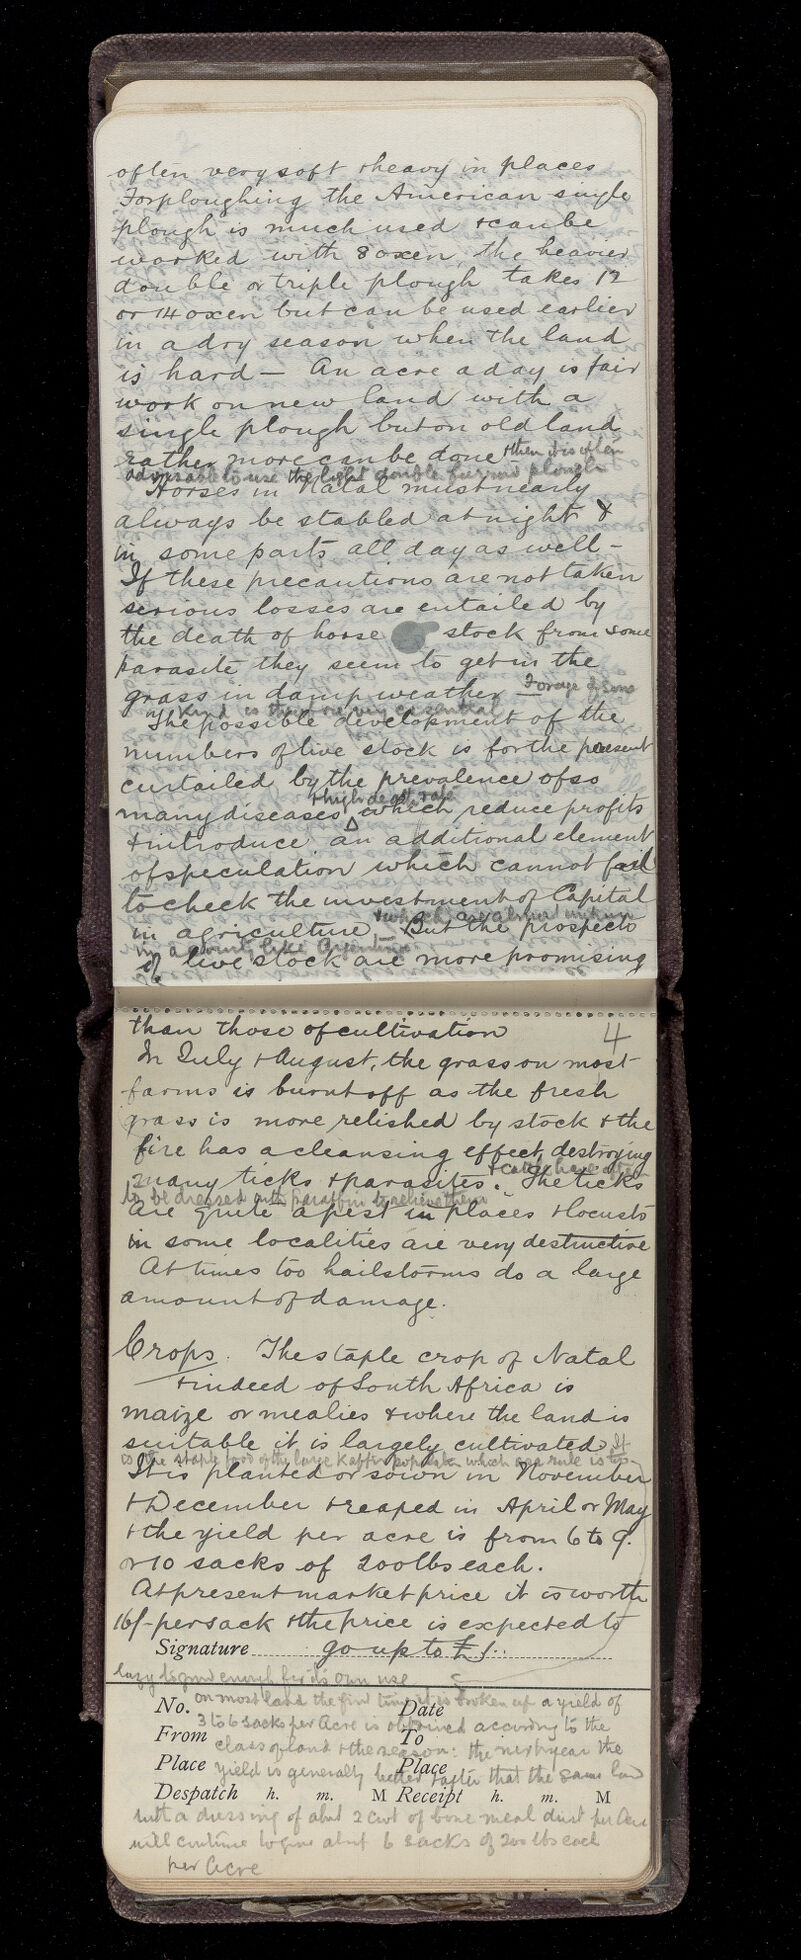 2
often very soft & heavy in places
For ploughing the American single
plough is much used & can be
worked with 8 oxen, the heavier
double or triple plough takes 12
or 14 oxen but can be used earlier
in a dry season when the land
is hard — An acre a day is fair
work on new land with a
single plough but on old land
rather more can be done & then it is often
advisable to use the light double furrow plough
Horses in Natal must nearly
always be stabled at night &
in some parts all day as well —
If these precautions are not taken
serious losses are entailed by
the death of horse stock from some
parasite they seem to get in the
grass in damp weather Forage of some
kind is therefore very essential
The possible development of the
numbers of live stock is for the present
curtailed by the prevalence of so
& high death rate
many diseases which reduce profits
& introduce an additional element
of speculation which cannot fail
to check the investment of Capital
& which are almost unknown
in agriculture. But the prospects
in a country like Argentina
of live stock are more promising
than those of cultivation 4
In July & August, the grass on most
farms is burnt off as the fresh
grass is more relished by stock & the
fire has a cleansing effect, destroying
& cattle have often
many ticks & parasites. The ticks
to be dressed with paraffin to relieve them
are quite a pest in places & locusts
in some localities are very destructive
At times too hailstorms do a large
amount of damage.
Crops. The staple crop of Natal
& indeed of South Africa is
maize or mealies & where the land is
suitable it is largely cultivated It
is the staple food of the large Kaffir population which as a rule is too
It is planted or sown in November
& December & reaped in April or May
& the yield per acre is from 6 to 9.
or 10 sacks of 200 lbs each.
At present market price it is worth
16/- per sack & the price is expected to
Signature go up to £1.
lazy to grow enough for its own use
No. on most land the first time it is broken up a yield of Date
From 3 to 6 sacks per Acre is obtained according to the To
Place class of land & the season: the next year the Place
yield is generally better & after that the same land
Despatch h. m. M Receipt h. m. M
with a dressing of about 2 cwt of bone meal dust per Acre
will continue to give about 6 sacks of 200 lbs each
per Acre